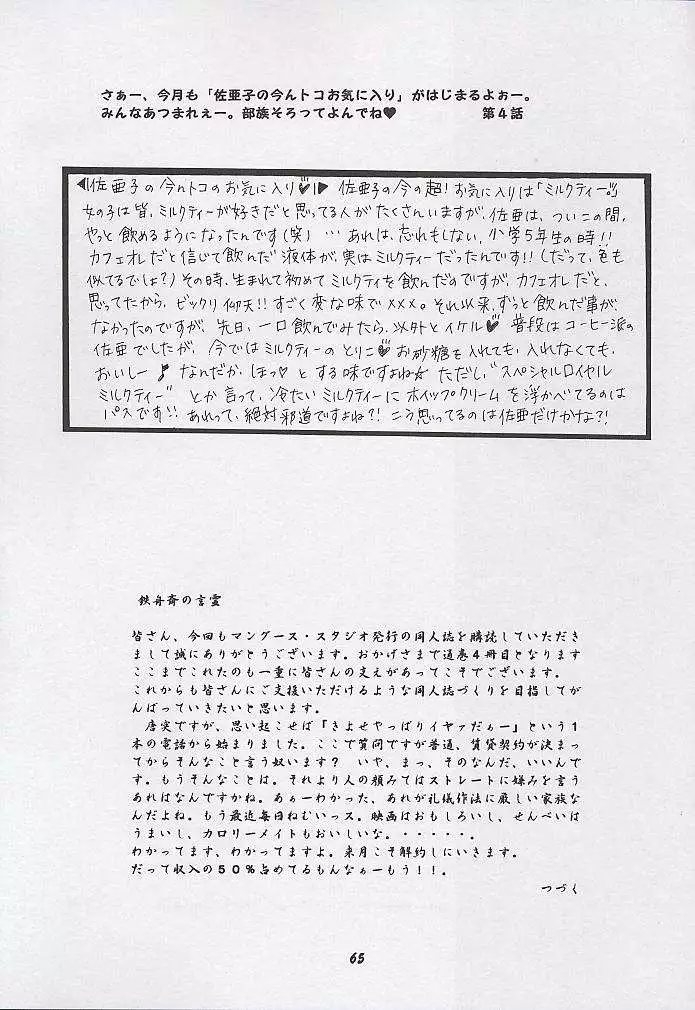 さぁー、今月も「佐亜子の今んトコお気に入り」がはじまるよぉー。
みんなあつまれぇー。部族そろってよんでね♥ 第4話
◀佐亜子の今んトコのお気に入り♥▶ 佐亜子の今の超!お気に入りは「ミルクティー」。
女の子は皆、ミルクティーが好きだと思ってる人がたくさんいますが、佐亜は、ついこの間、
やっと飲めるようになったんです(笑) … あれは、忘れもしない、小学5年生の時!!
カフェオレだと信じて飲んだ液体が、実はミルクティーだったんです!!(だって、色も
似てるでしょ?)その時、生まれて初めてミルクティを飲んだのですが、カフェオレだと、
思ってたから、ビックリ仰天!!すごく変な味で×××。それ以来、ずっと飲んだ事が
なかったのですが、先日、一口飲んでみたら、以外とイケル♥ 普段はコーヒー派の
佐亜でしたが、今ではミルクティーのとりこ♡お砂糖を入れても、入れなくても、
おいしー♪ なんだか、ほっ♡とする味ですよね☆ ただし、"スペシャルロイヤル
ミルクティー" とか言って、冷たいミルクティーにホイップクリームを浮かべてるのは
パスです!!あれって、絶対邪道ですよね?!こう思ってるのは佐亜だけかな?!
鉄舟斎の言霊
皆さん、今回もマングース・スタジオ発行の同人誌を購読していただき
まして誠にありがとうございます。おかげさまで通巻4冊目となります
ここまでこれたのも一重に皆さんの支えがあってこそでございます。
これからも皆さんにご支援いただけるような同人誌づくりを目指してが
んばっていきたいと思います。
唐突ですが、思い起こせば「きよせやっぱりイヤァだぁー」という1
本の電話から始まりました。ここで質問ですが普通、賃貸契約が決まっ
てからそんなこと言う奴います? いや、まっ、そのなんだ、いいんで
す。もうそんなことは。それより人の顔みてはストレートに嫌みを言う
あれはなんですかね。あぁーわかった、あれが礼儀作法に厳しい家族な
んだよね。もう最近毎日ねむいっス。映画はおもしろいし、せんべいは
うまいし、カロリーメイトもおいしいな。・・・・・。
わかってます、わかってますよ。来月こそ解約しにいきます。
だって収入の50%占めてるもんなぁーもう!!。
つづく
65